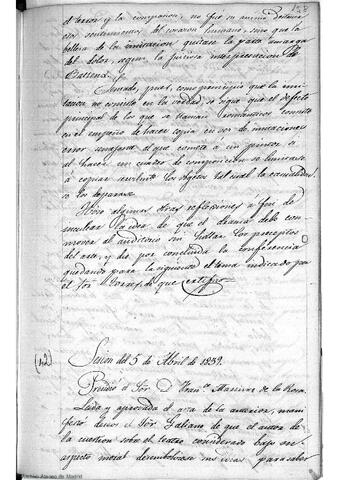 158
el terror y la compasion, no fue su animo desterrar
esos sentimientos del corazon humano, sino que la
belleza de la imitacion quitase la parte amarga
del dolor, segun la juiciosa interpretacion de
Sentado, pues, como principio que la imi-
tacion no consiste en la verdad, se sigue que el defecto
principal de los que se llaman romanticos consiste
en el empeño de hacer copia en vez de imitaciones
error semejante al que comete un pintor si
al hacer un cuadro de composicion se limitara
á copiar servilmente los objetos tal cual la casualidad
se los deparara.
Hizo algunas otras reflexiones á fin de
inculcar la idea de que el drama debe con-
mover al auditorio sin faltar los preceptos
del arte, y dio por concluida la conferencia
quedando para la siguiente el tema indicado por
el Sor. de que certifico
(42)
Sesion del 5 de Abril de 1839.
Presidio el Sor. D. Fran.co Martinez de la Rosa.
Leida y aprobada el acta de la anterior, mani-
festo deseos el Sor. Galiano de que el autor de
la cuestion sobre el teatro considerado bajo su
aspecto moral desenvolviese sus ideas para saber
Ateneo de Madrid